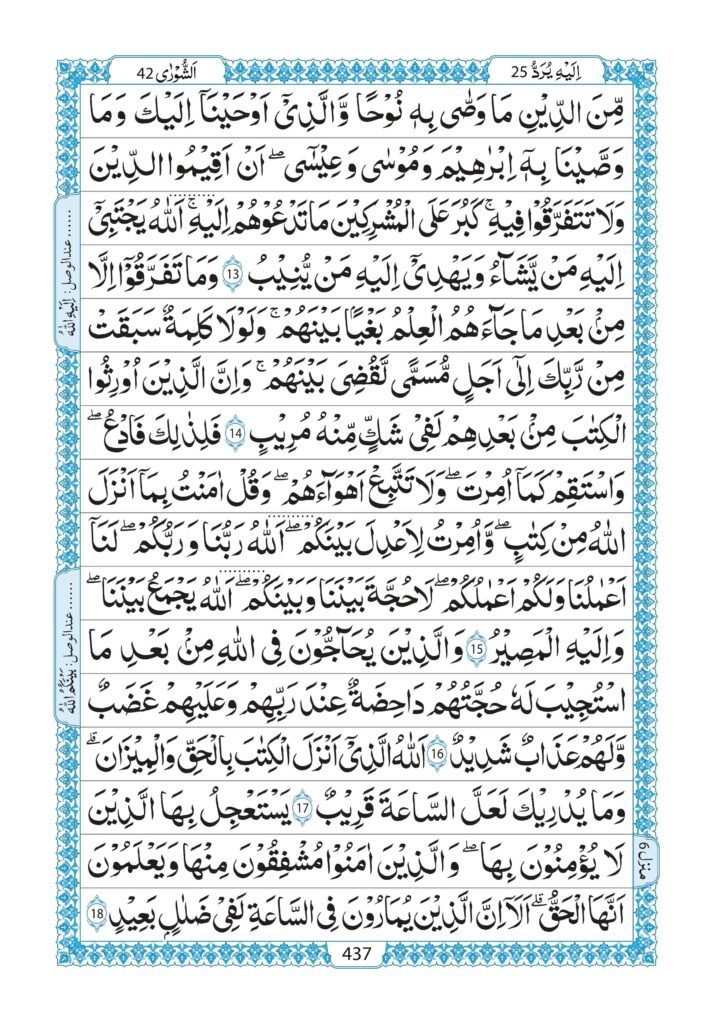 اِلَيْهِ يُرَدُّ 25
اَلشُّوْرٰى 42
مِّنَ الدِّيْنِ مَا وَصّٰى بِهٖ نُوْحًا وَّالَّذِىْۤ اَوْحَيْنَاۤ اِلَيْكَ وَمَا
وَصَّيْنَا بِهٖۤ اِبْرٰهِيْمَ وَمُوْسٰى وَعِيْسٰٓى ۖ اَنْ اَقِيْمُوا الدِّيْنَ
وَلَا تَتَفَرَّقُوْا فِيْهِ ؕ كَبُرَ عَلَى الْمُشْرِكِيْنَ مَا تَدْعُوْهُمْ اِلَيْهِ ؕ اَللّٰهُ يَجْتَبِىْۤ
اِلَيْهِ مَنْ يَّشَآءُ وَيَهْدِىْۤ اِلَيْهِ مَنْ يُّنِيْبُ 13 وَمَا تَفَرَّقُوْۤا اِلَّا
مِنْۢ بَعْدِ مَا جَآءَهُمُ الْعِلْمُ بَغْيًاۢ بَيْنَهُمْ ؕ وَلَوْلَا كَلِمَةٌ سَبَقَتْ
مِنْ رَّبِّكَ اِلٰٓى اَجَلٍ مُّسَمًّى لَّقُضِىَ بَيْنَهُمْ ؕ وَاِنَّ الَّذِيْنَ اُوْرِثُوا
الْكِتٰبَ مِنْۢ بَعْدِهِمْ لَفِىْ شَكٍّ مِّنْهُ مُرِيْبٍ 14 فَلِذٰلِكَ فَادْعُ ۖ
وَاسْتَقِمْ كَمَاۤ اُمِرْتَ ۖ وَلَا تَتَّبِعْ اَهْوَآءَهُمْ ۖ وَقُلْ اٰمَنْتُ بِمَاۤ اَنْزَلَ
اللّٰهُ مِنْ كِتٰبٍ ۖ وَّاُمِرْتُ لِاَعْدِلَ بَيْنَكُمْ ۖ اَللّٰهُ رَبُّنَا وَرَبُّكُمْ ۖ لَنَاۤ
اَعْمٰلُنَا وَلَكُمْ اَعْمٰلُكُمْ ۖ لَا حُجَّةَ بَيْنَنَا وَبَيْنَكُمْ ۖ اَللّٰهُ يَجْمَعُ بَيْنَنَا ۖ
وَاِلَيْهِ الْمَصِيْرُ 15 وَالَّذِيْنَ يُحَآجُّوْنَ فِى اللّٰهِ مِنْۢ بَعْدِ مَا
اسْتُجِيْبَ لَهٗ حُجَّتُهُمْ دَاحِضَةٌ عِنْدَ رَبِّهِمْ وَعَلَيْهِمْ غَضَبٌ
وَّلَهُمْ عَذَابٌ شَدِيْدٌ 16 اَللّٰهُ الَّذِىْۤ اَنْزَلَ الْكِتٰبَ بِالْحَقِّ وَالْمِيْزَانَ ۗ
وَمَا يُدْرِيْكَ لَعَلَّ السَّاعَةَ قَرِيْبٌ 17 يَسْتَعْجِلُ بِهَا الَّذِيْنَ
لَا يُؤْمِنُوْنَ بِهَا ۖ وَالَّذِيْنَ اٰمَنُوْا مُشْفِقُوْنَ مِنْهَا وَيَعْلَمُوْنَ
اَنَّهَا الْحَقُّ ۗ اَلَاۤ اِنَّ الَّذِيْنَ يُمَارُوْنَ فِى السَّاعَةِ لَفِىْ ضَلٰلٍۢ بَعِيْدٍ 18
...... عند الوصل: اِلَيْهِ اللّٰهُ
...... عند الوصل: بَيْنَكُمُ اللّٰهُ
منزل 6
437